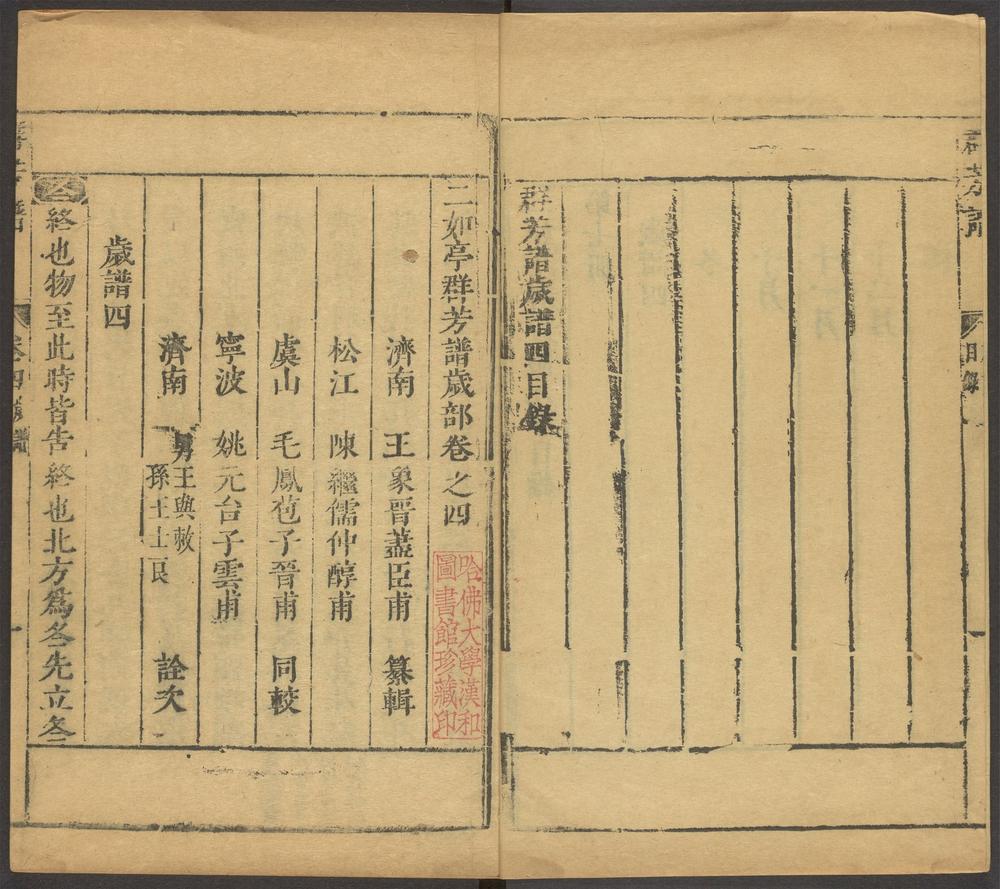 群芳譜
目錄
群芳譜歲譜四目錄
二如亭群芳譜歲部卷之四
哈佛大學漢和
圖書館珍藏印
濟南 王象晉藎臣甫 纂輯
松江 陳繼儒仲醇甫
虞山 毛鳳苞子晉甫 同較
寧波 姚元台子雲甫
濟南 男王與敕
孫王士良 詮次
歲譜四
冬終也物至此時皆告終也北方爲冬先立冬